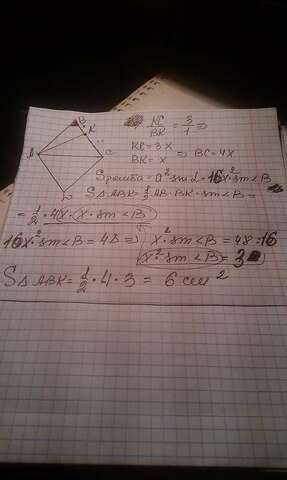 B
K
A
C
D
KC/BK = 3/1 ⇒
KC = 3x
BK = x ⇒ BC = 4x
Sромба = a² sin L = 16x² · sin ∠B
S△ABK = 1/2 · AB · BK · sin ∠B =
= 1/2 · 4x · x · sin ∠B
16x² · sin ∠B = 48 ⇒ x² · sin ∠B = 48 : 16
x² · sin ∠B = 3
S△ABK = 1/2 · 4 · 3 = 6 см²